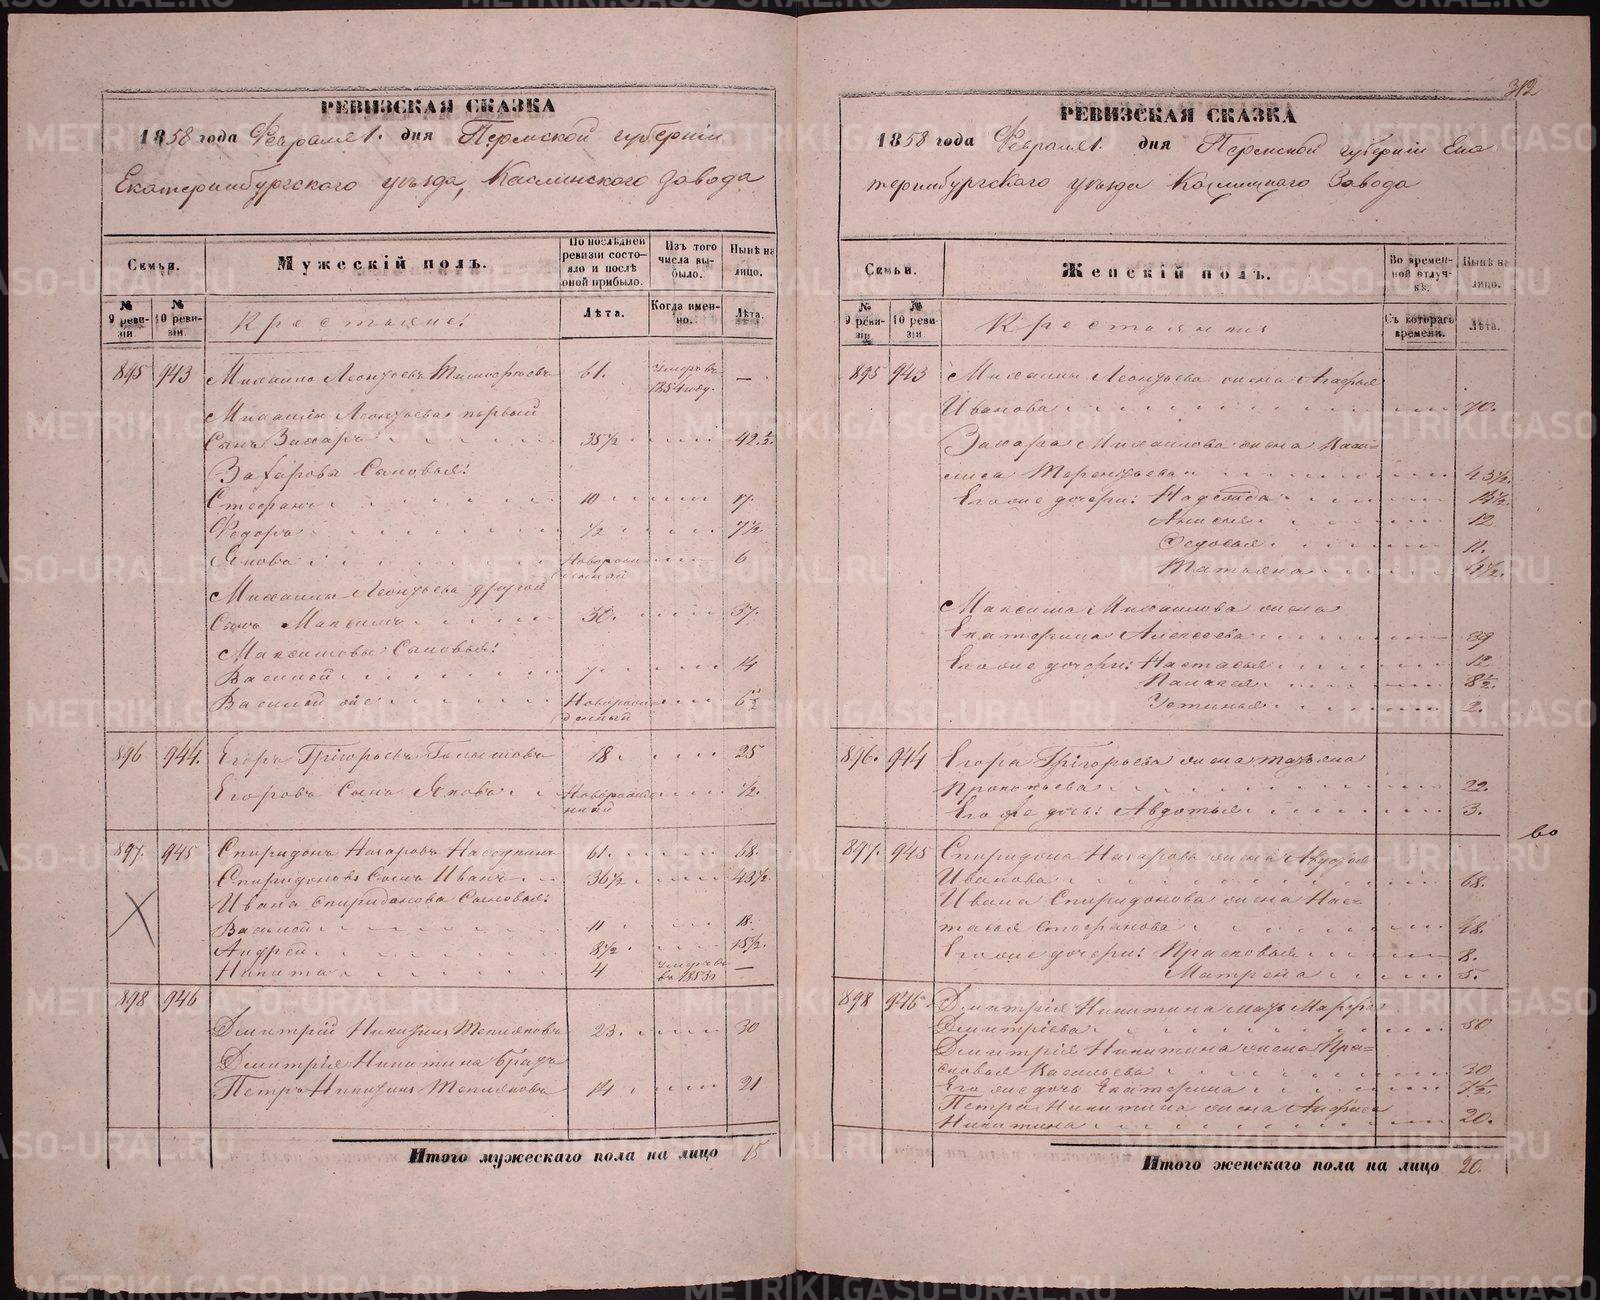 РЕВИЗСКАЯ СКАЗКА
1858 года Февраля 1. дня Пермской губерніи
Екатеринбургскаго уѣзда, Каслинскаго завода
Семьи.
Мужескій полъ.
По послѣдней ревизіи состояло и послѣ оной прибыло.
Изъ того числа выбыло.
Нынѣ на лицо.
№ 9 ревизіи
№ 10 ревизіи
Крестьяне:
Лѣта.
Когда именно.
Лѣта.
895 943 Михаило Леонтьевъ 61. Умеръ въ 1854 году. —
Михаилы Леонтьева первый
Сынъ Захаръ 35½ 42½.
Захаровы Сыновья:
Стефанъ 10 17.
Федоръ ½ 7½
Яковъ Новорожденный 6
Михаилы Леонтьева другой
Сынъ Максимъ 30. 37.
Максимовы Сыновья:
Василей 7 14
Василей же Новорожденный 6½
896 944. Егоръ Григорьевъ 18. 25
Егоровъ Сынъ Яковъ Новорожденный ½.
897. 945 Спиридонъ Назаровъ 61. 68.
Спиридоновъ Сынъ Иванъ 36½ 43½
Ивана Спиридонова Сыновья:
Василей 11 18.
Андрей 8½ 15½.
Никита 4 Умеръ въ 1853г —
898 946
Дмитрій Никитинъ 23. 30
Дмитрія Никитина братъ
Петръ Никитинъ 14 21
Итого мужескаго пола на лицо 15
312
РЕВИЗСКАЯ СКАЗКА
1858 года Февраля 1. дня Пермской губерніи Ека
теринбургскаго уѣзда Каслинскаго Завода
Семьи.
Женскій полъ.
Во временной отлучкѣ.
Нынѣ на лицо.
№ 9 ревизіи
№ 10 ревизіи
Крестьянки
Съ котораго времени.
Лѣта.
895 943 Михаилы Леонтьева жена Агафья
Иванова 70.
Захара Михаилова жена Васи=
лиса Терентьева 43½.
Его же дочери: Надежда 14½.
Анисья 12
Федосья 11.
Татьяна 4½.
Максима Михаилова жена
Екатерина Алексеева 39
Его же дочери: Настасья 12
Палагея 8½.
Устинья 2.
896. 944 Егора Григорьева жена Татьяна
Прокопьева 22.
Его же дочь: Авдотья 3.
897. 945 Спиридона Назарова жена Авдотья
Иванова 68.
Ивана Спиридонова жена Нас=
тасья Стефанова 48.
Его же дочери: Прасковья 8.
Матрена 5.
во
898 946 Дмитрія Никитина мать Марфа
Дмитріева 50
Дмитрія Никитина жена Пра=
сковья Васильева 30
Его же дочь Екатерина 7½.
Петра Никитина жена Анфиса
Никитина 20.
Итого женскаго пола на лицо 20.
METRIKI.GASO-URAL.RU